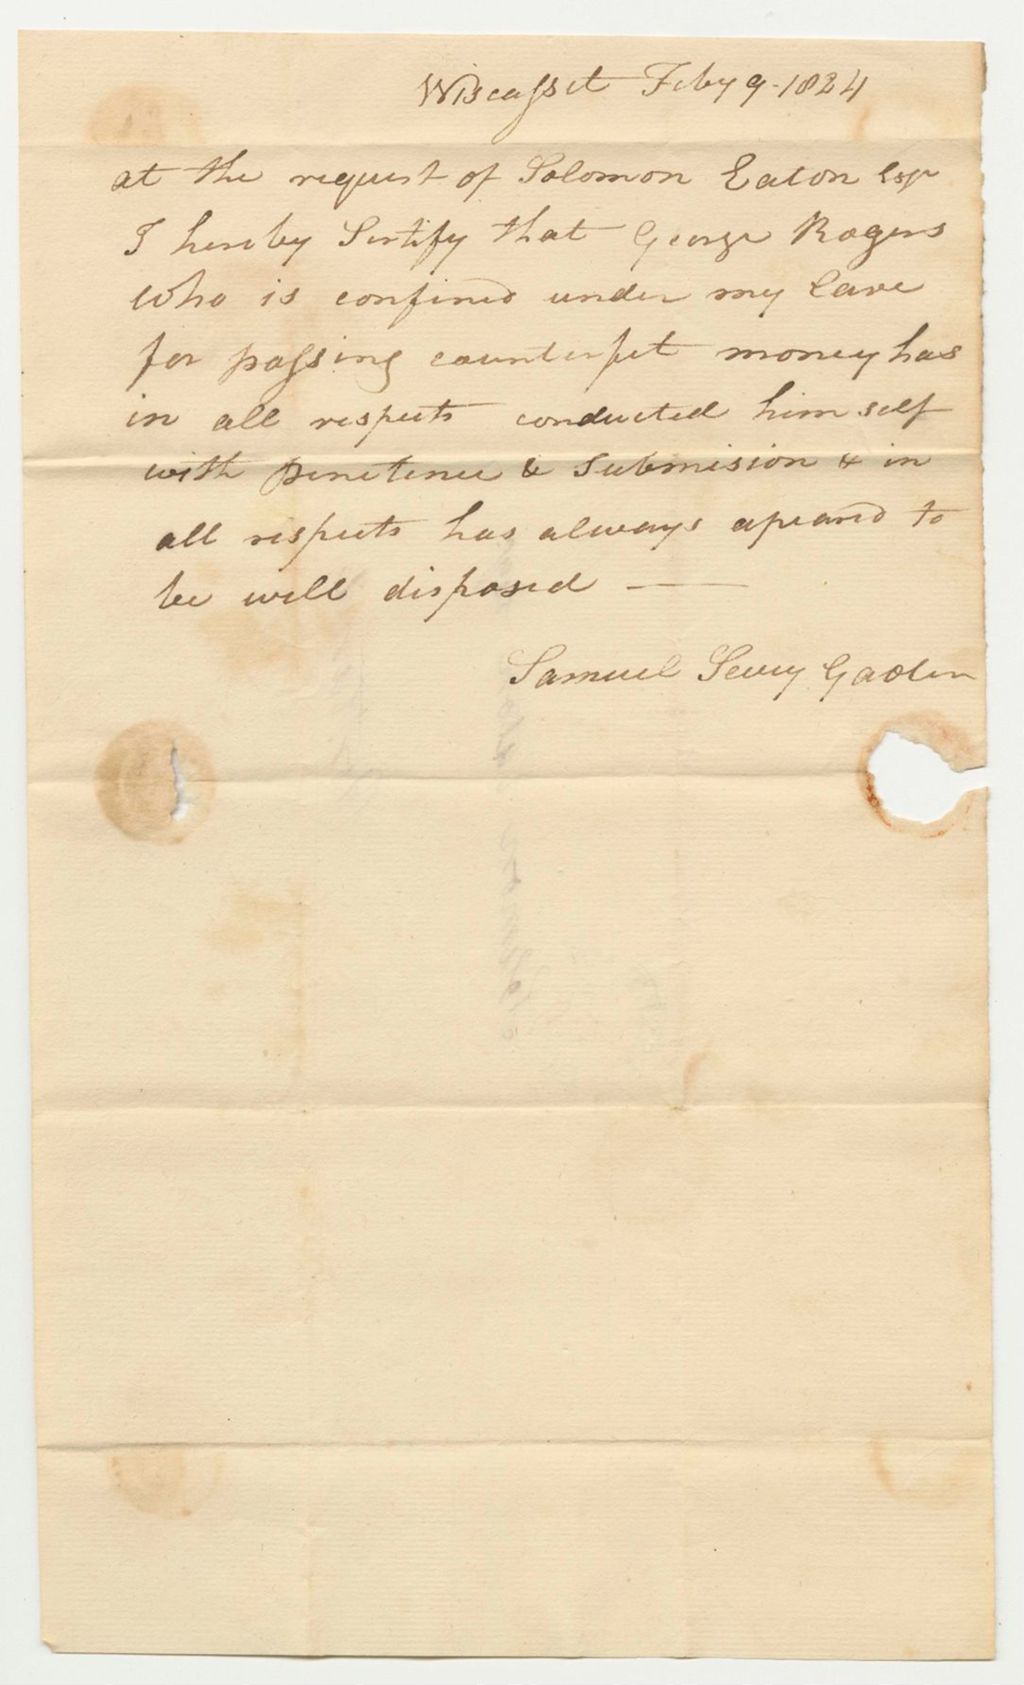 Wiscasset Feby 9. 1824
at the request of Solomon Eaton Esqr
I hereby Sertify that George Rogers
who is confined under my Care
for passing counterfeit money has
in all respects conducted him self
with penetence & Submision & in
all respects has always apeared to
be well disposed —
Samuel Sevey Gaoler